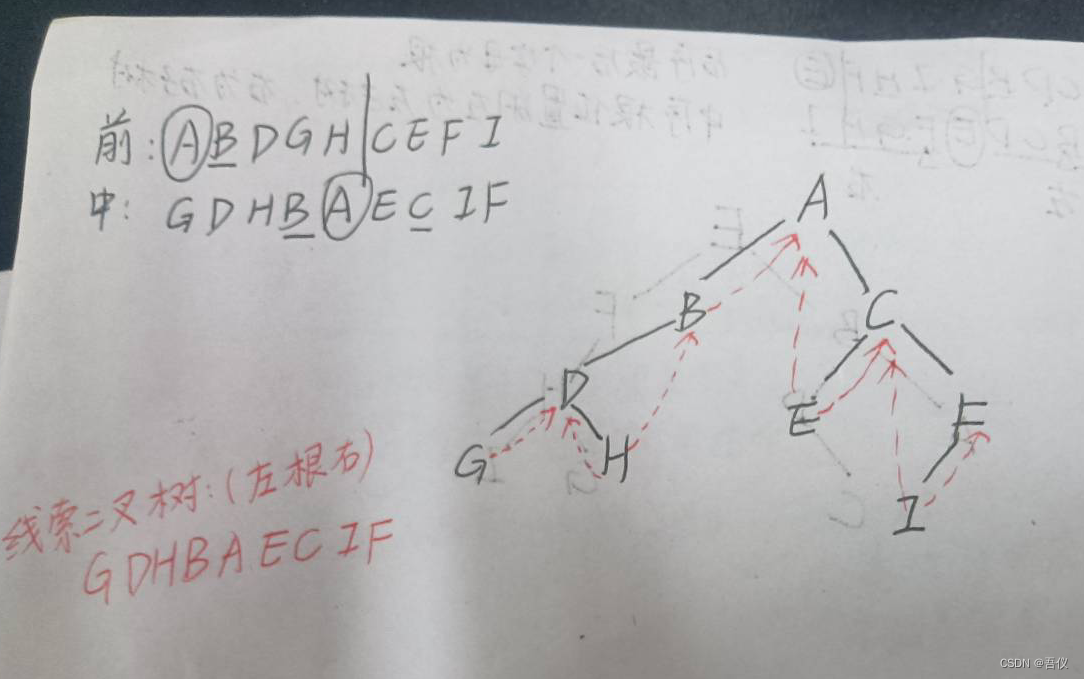 前: A B D G H | C E F I
中: G D H B A E C I F
A
B
C
D
E
F
G
H
I
线索二叉树:(左根右)
G D H B A E C I F
CSDN @吾仪